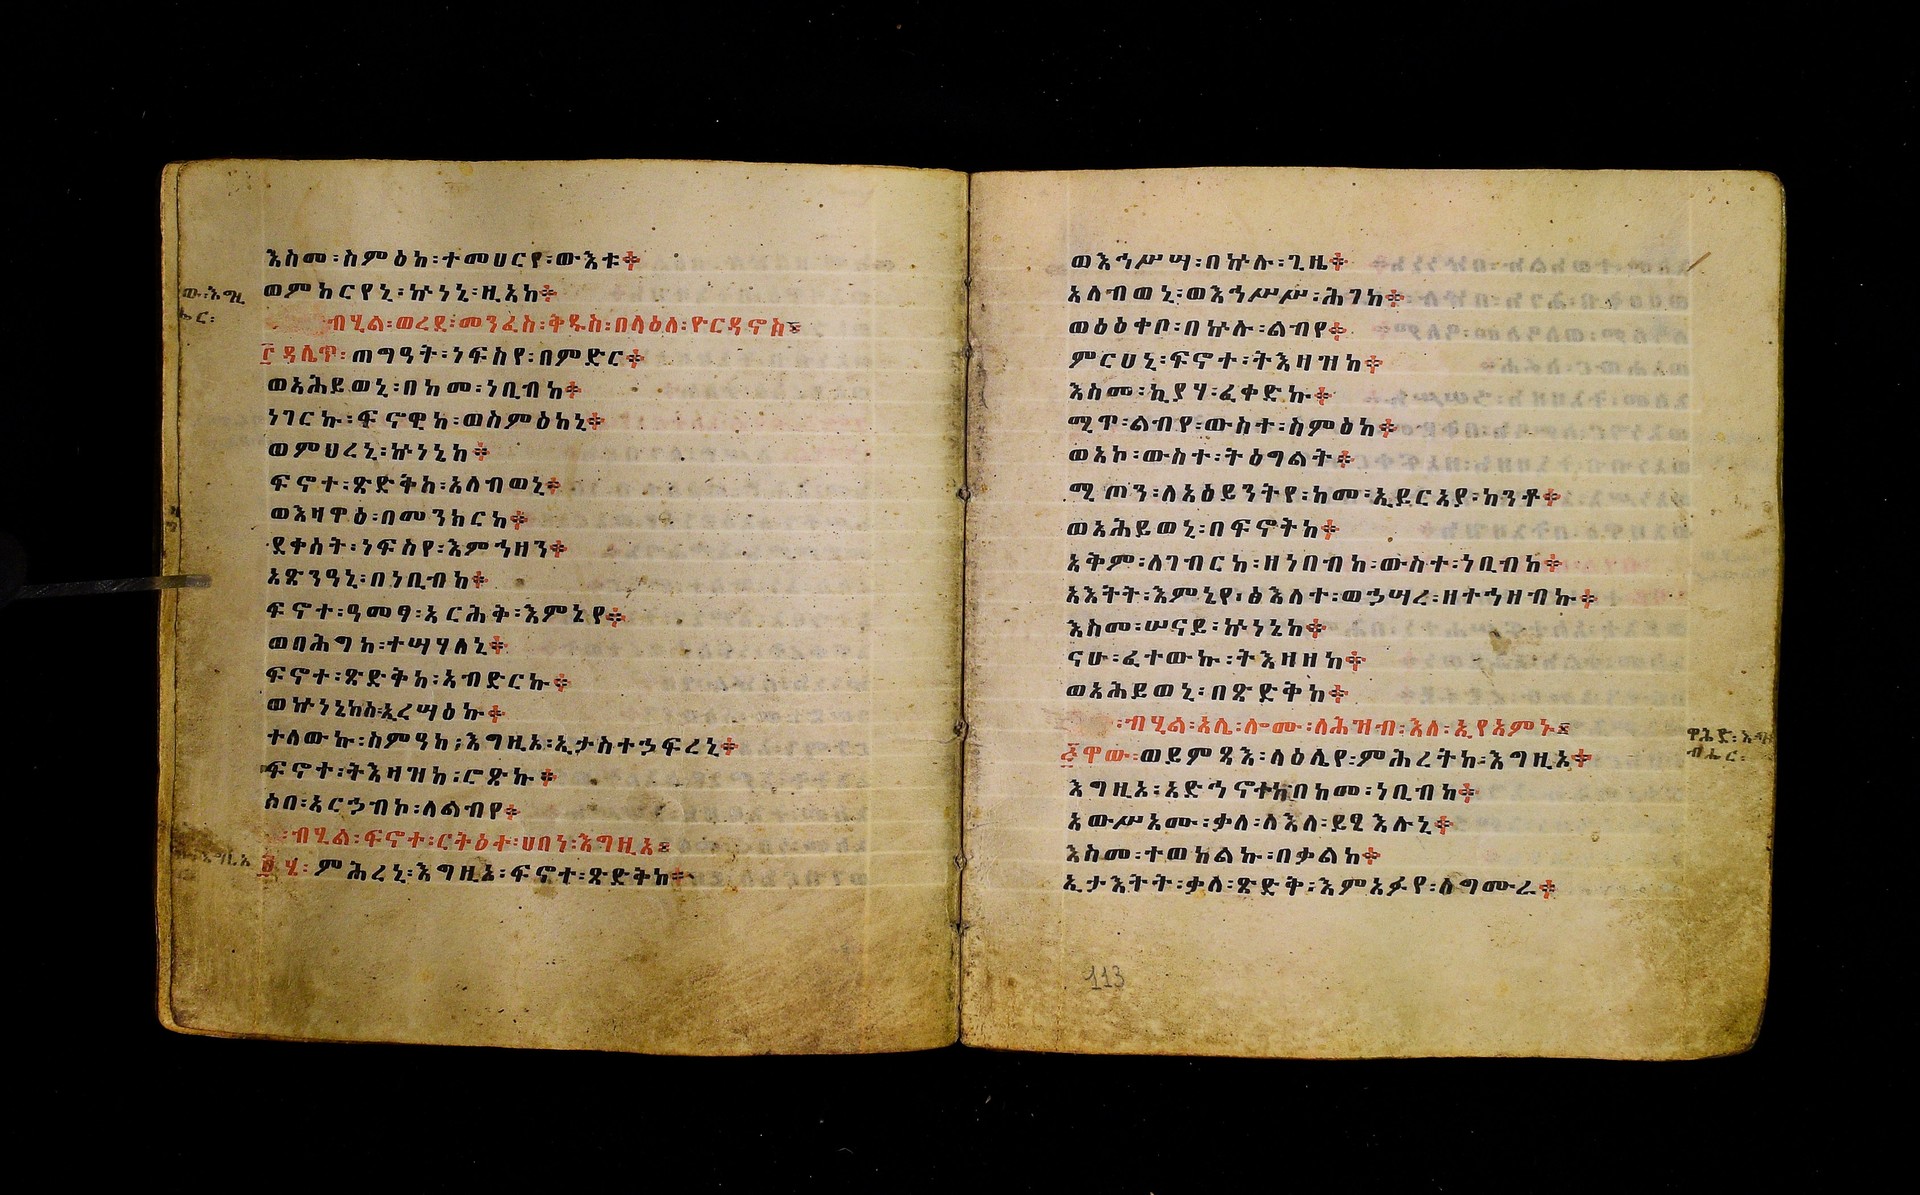 እስመ፡ስምዕከ፡ተመሀርየ፡ውእቱ፨
ወምክርየኒ፡ኵነኔ፡ዚአከ፨
ብሂል፡ወረደ፡መንፈስ፡ቅዱስ፡በላዕለ፡ዮርዳኖስ፤
፬ዳሌጥ፡ጠግዓት፡ነፍስየ፡በምድር፨
ወአሕይወኒ፡በከመ፡ነቢብከ፨
ነገርኩ፡ፍናዊከ፡ወስምዕከኒ፨
ወምህረኒ፡ኵነኔከ፨
ፍኖተ፡ጽድቅከ፡አለብወኒ፨
ወእዛዋዕ፡በመንክርከ፨
ደቀሰት፡ነፍስየ፡እምኀዘን፨
አጽንዓኒ፡በነቢብከ፨
ፍኖተ፡ዓመፃ፡አርሕቅ፡እምኔየ፨
ወበሕግከ፡ተሣሃለኒ፨
ፍኖተ፡ጽድቅከ፡አብድርኩ፨
ወኵነኔከሰ፡ኢረሣዕኩ፨
ተለውኩ፡ስምዓከ፡እግዚአ፡ኢታስተኃፍረኒ፨
ፍኖተ፡ትእዛዝከ፡ሮጽኩ፨
ሶበ፡አርኃብኮ፡ለልብየ፨
ብሂል፡ፍኖተ፡ርትዕተ፡ሀበነ፡እግዚአ፤
፭ሄ፡ምሕረኒ፡እግዚኦ፡ፍኖተ፡ጽድቅከ፨
ው፡እግዚ
ሔር፡
ወእኅሥሣ፡በኵሉ፡ጊዜ፨
አለብወኒ፡ወእኅሥሥ፡ሕገከ፨
ወዕዕቀቦ፡በኵሉ፡ልብየ፨
ምርሀኒ፡ፍኖተ፡ትእዛዝከ፨
እስመ፡ኪያሃ፡ፈቀድኩ፨
ሚጥ፡ልብየ፡ውስተ፡ስምዕከ፨
ወአኮ፡ውስተ፡ትዕግልት፨
ሚጦን፡ለአዕይንትየ፡ከመ፡ኢይርአያ፡ከንቶ፨
ወአሕይወኒ፡በፍኖትከ፨
አቅም፡ለገብርከ፡ዘነበብከ፡ውስተ፡ነቢብከ፨
አእትት፡እምኔየ፡ፅእለተ፡ወኃሣረ፡ዘተኀዘብኩ፨
እስመ፡ሠናይ፡ኵነኔከ፨
ናሁ፡ፈተውኩ፡ትእዛዘከ፨
ወአሕይወኒ፡በጽድቅከ፨
፡ብሂል፡አሌ፡ሎሙ፡ለሕዝብ፡እለ፡ኢየአምኑ፤
፮ዋው፡ወይምጻእ፡ላዕሌየ፡ምሕረትከ፡እግዚአ፨
እግዚአ፡አድኅኖተከ፡በከመ፡ነቢብከ፨
አውሥአሙ፡ቃለ፡ለእለ፡ይፂእሉኒ፨
እስመ፡ተወከልኩ፡በቃልከ፨
ኢታእትት፡ቃለ፡ጽድቅ፡እምአፉየ፡ለግሙራ፨
ዋሕድ፡እግዚ
ብሔር፡
113